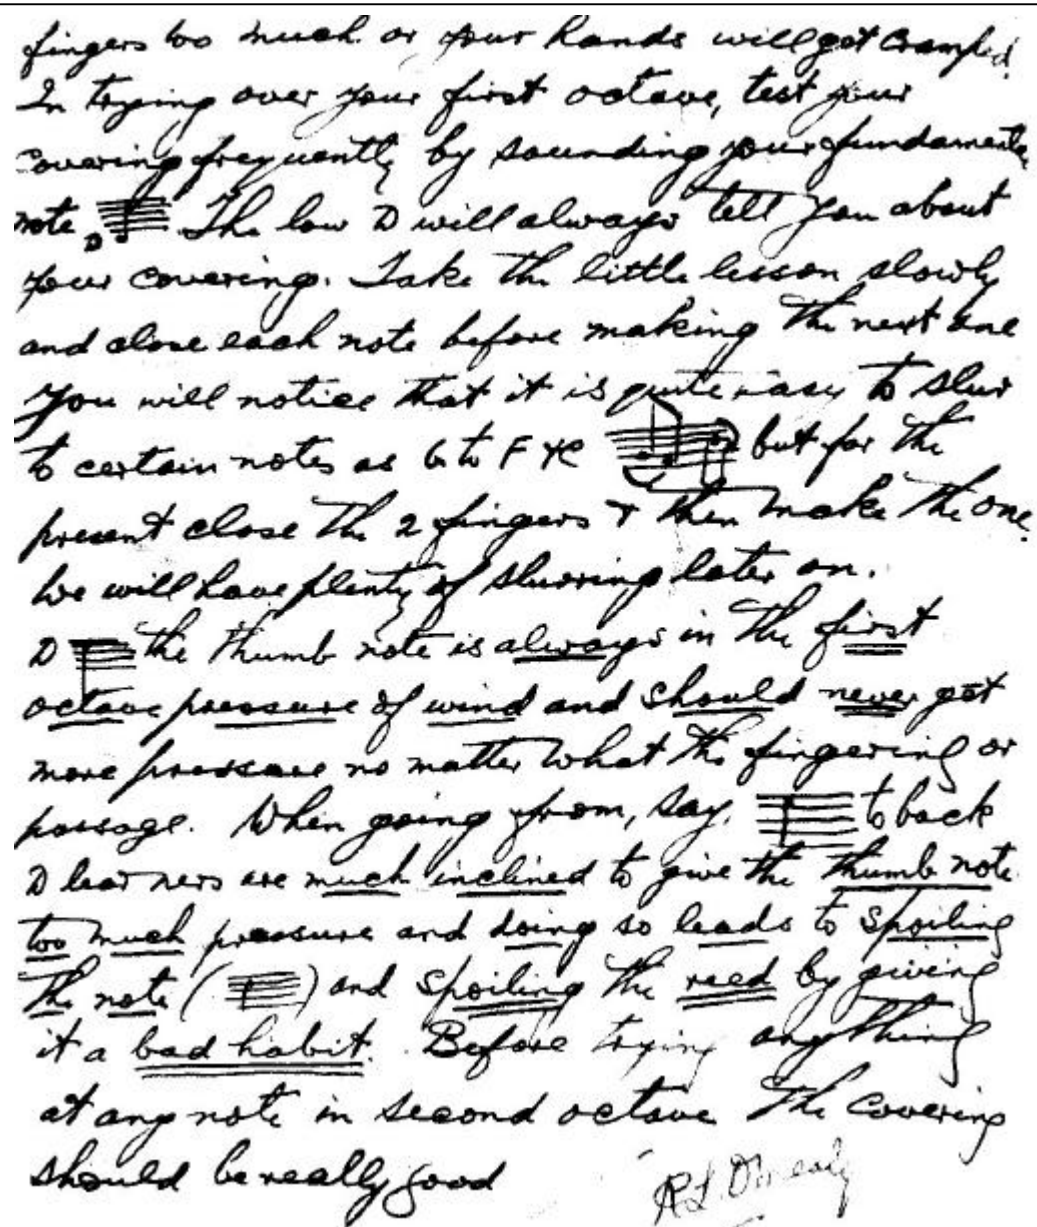 fingers too much or your hands will get cramped.
In trying over your first octave, test your
covering frequently by sounding your fundamental
note D The low D will always tell you about
your covering. Take the little lesson slowly
and close each note before making the next one
You will notice that it is quite easy to slur
to certain notes as G to F + C but for the
present close the 2 fingers + then make the one.
We will have plenty of slurring later on.
D the thumb note is always in the first
octave pressure of wind and should never get
more pressure no matter what the fingering or
passage. When going from, say, to back
D learners are much inclined to give the thumb note
too much pressure and doing so leads to spoiling
the note ( ) and spoiling the reed by giving
it a bad habit. Before trying anything
at any note in second octave the covering
should be really good
R.L. O'Mealy